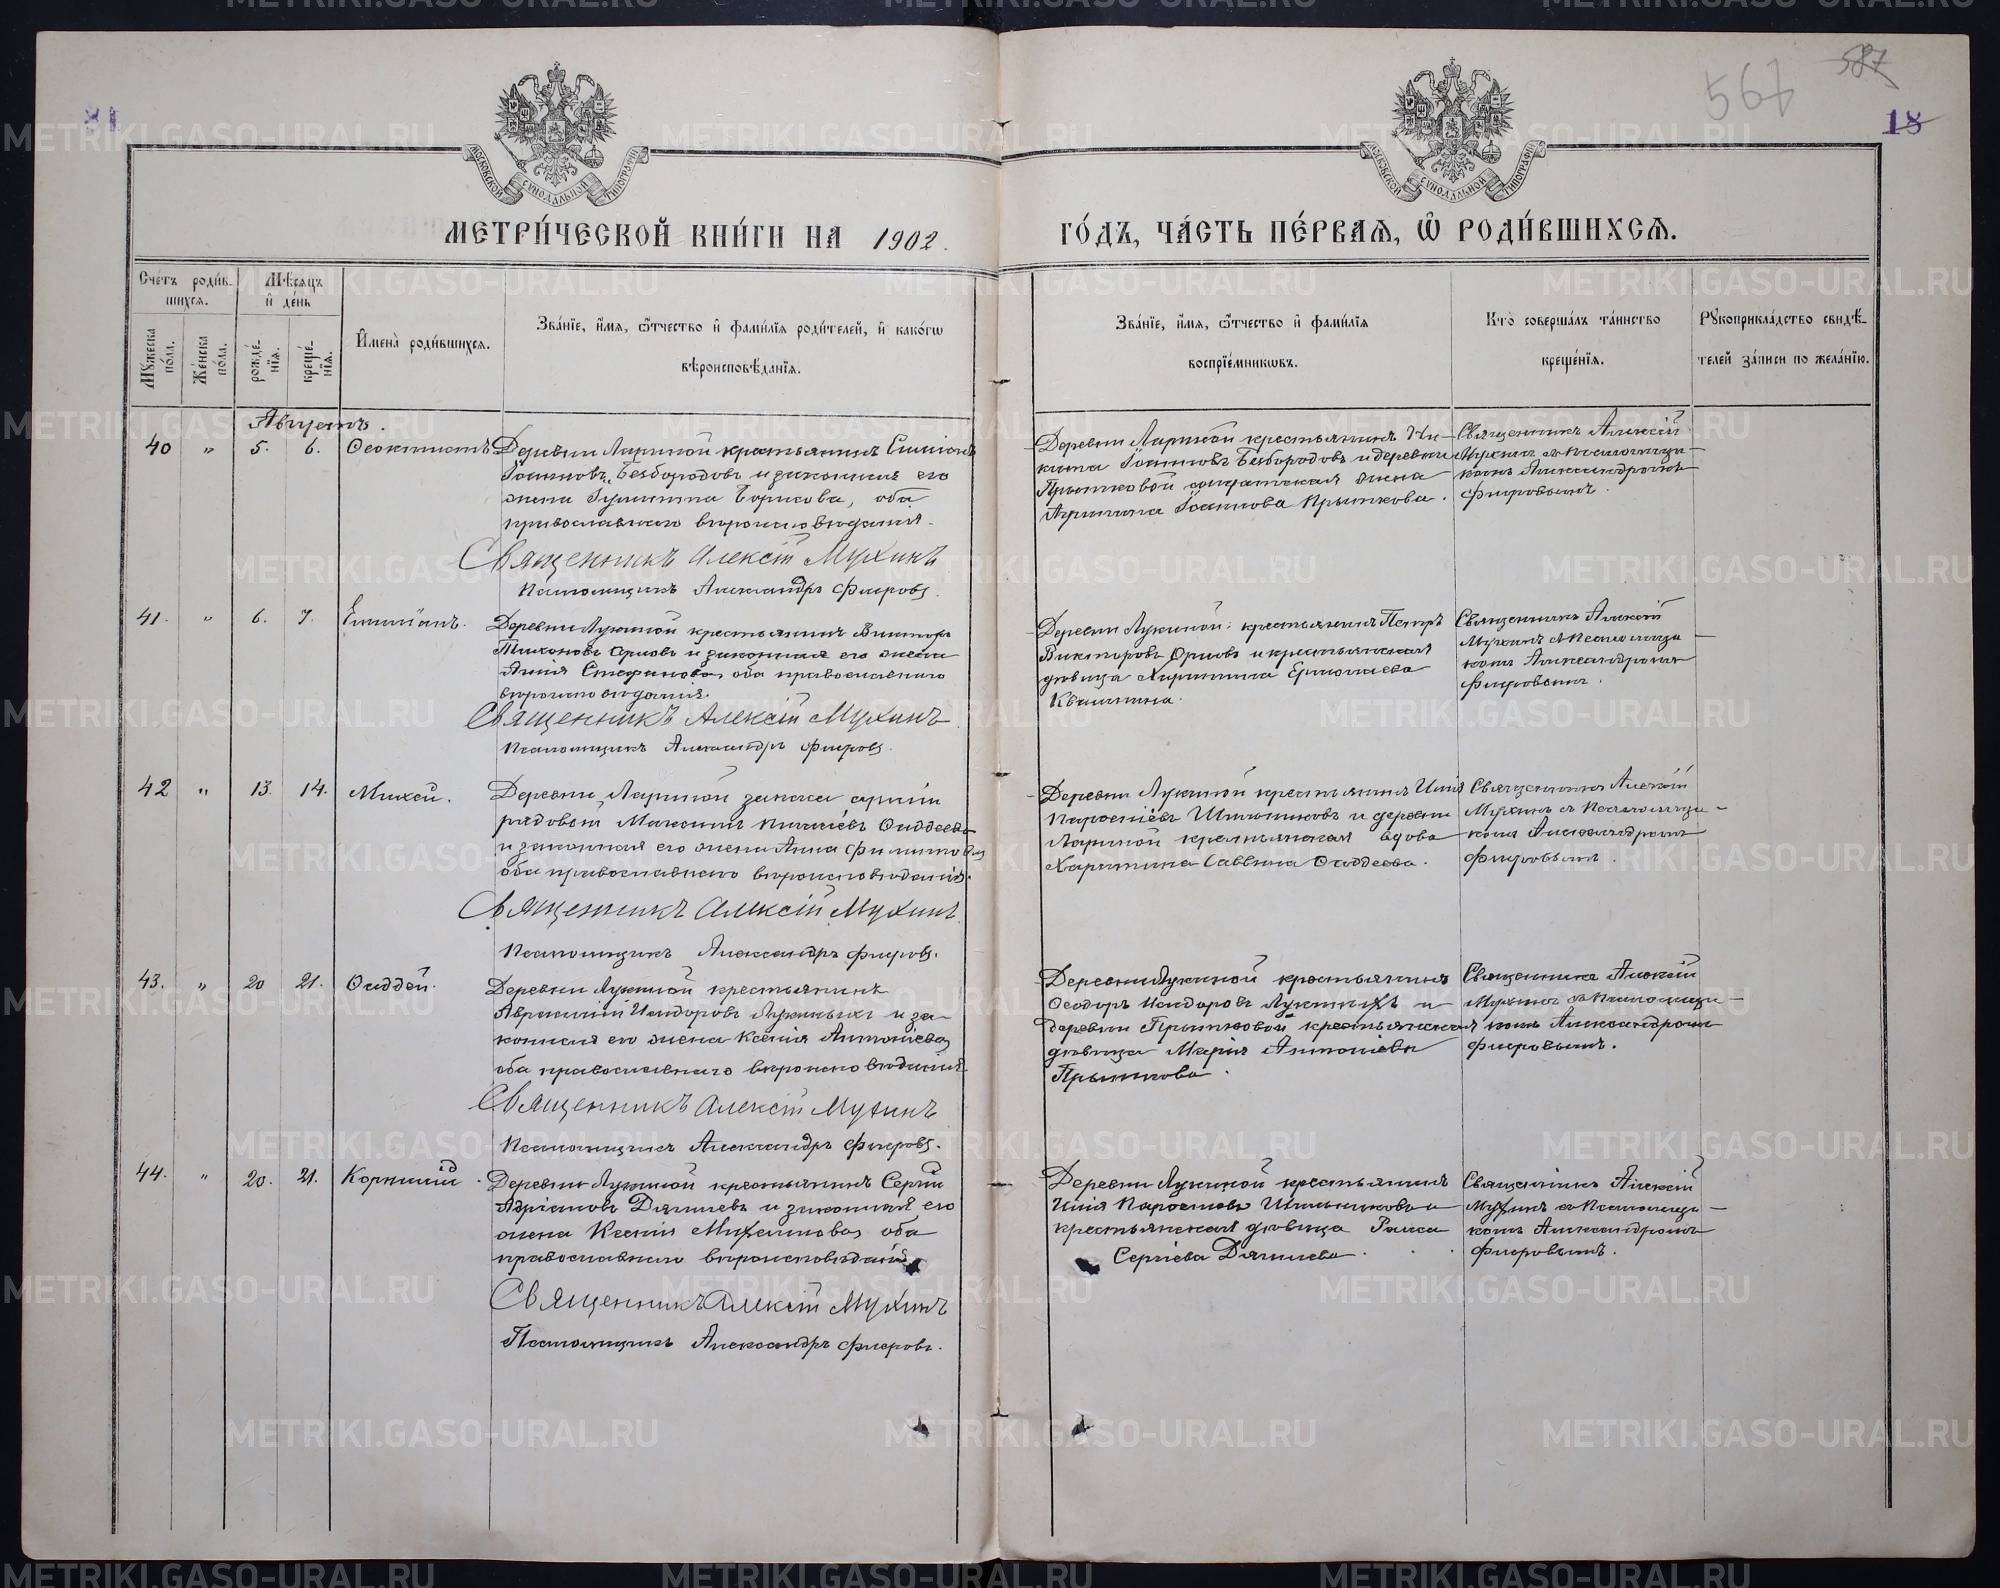 587
567
18
МОСКОВСКОЙ СѴНОДАЛЬНОЙ ТИПОГРАФІИ
МОСКОВСКОЙ СѴНОДАЛЬНОЙ ТИПОГРАФІИ
МЕТРИ́ЧЕСКОЙ КНИ́ГИ НА 1902.
ГО́ДЪ, ЧА́СТЬ ПЕ́РВАѦ, Ѽ РОДИ́ВШИХСѦ.
Сче́тъ роди́в-
шихсѧ.
Мѣ́сѧцъ
и҆ де́нь
Мꙋ́жеска по́ла.
Же́нска по́ла.
рожде́-
нїѧ.
креще́-
нїѧ.
И҆мена̀ роди́вшихсѧ.
Зва́нїе, и҆́мѧ, ѻ҆́тчество и҆ фами́лїѧ роди́телей, и҆ како́гѡ
вѣроисповѣ́данїѧ.
Зва́нїе, и҆́мѧ, ѻ҆́тчество и҆ фами́лїѧ
воспрїе́мникѡвъ.
Кто̀ соверша́лъ та́инство
креще́нїѧ.
Рꙋкоприкла́дство свидѣ́-
телей за́писи по жела́нїю.
Августъ.
40 " 5. 6. Ѳеоктистъ
Деревни Лариной крестьянинъ
Іоанновъ Безбородовъ и законная его
жена Борисова, оба
православнаго вѣроисповѣданія.
Священникъ Алексій Мухинъ
Псаломщикъ Александръ Флеровъ.
Деревни Лариной крестьянинъ Ни-
кита Іоанновъ Безбородовъ и деревни
Прытковой солдатская жена
Іоаннова Прыткова.
Священникъ Алексій
Мухинъ съ Псаломщи-
комъ Александромъ
Флеровымъ.
41. " 6. 7. Емиліанъ.
Деревни Лукиной крестьянинъ Викторъ
Тихоновъ Орловъ и законная его жена
Анна Стефанова, оба православнаго
вѣроисповѣданія.
Священникъ Алексій Мухинъ
Псаломщикъ Александръ Флеровъ.
Деревни Лукиной крестьянинъ Петръ
Викторовъ Орловъ и крестьянская
дѣвица Харитина Ермолаева
Квашнина.
Священникъ Алексій
Мухинъ съ Псаломщи-
комъ Александромъ
Флеровымъ.
42 " 13. 14. Михей.
Деревни Лариной запаса арміи
рядовой Максимъ Ѳаддеевъ
и законная его жена Анна Филиппова
оба православнаго вѣроисповѣданія.
Священникъ Алексій Мухинъ
Псаломщикъ Александръ Флеровъ.
Деревни Лукиной крестьянинъ Илія
и деревни
Лариной крестьянская вдова
Харитина Саввина Ѳаддеева.
Священникъ Алексій
Мухинъ съ Псаломщи-
комъ Александромъ
Флеровымъ.
43. " 20 21. Ѳаддей.
Деревни Лукиной крестьянинъ
Исидоровъ Лукиныхъ и за-
конная его жена Ксенія Антоніева
оба православнаго вѣроисповѣданія
Священникъ Алексій Мухинъ
Псаломщикъ Александръ Флеровъ.
Деревни Лукиной крестьянинъ
Ѳеодоръ Исидоровъ Лукиныхъ и
деревни Прытковой крестьянская
дѣвица Марія Антоніева
Прыткова.
Священникъ Алексій
Мухинъ съ Псаломщи-
комъ Александромъ
Флеровымъ.
44. " 20. 21. Корнилій.
Деревни Лукиной крестьянинъ Сергій
Адріановъ и законная его
жена Ксенія оба
православнаго вѣроисповѣданія
Священникъ Алексій Мухинъ
Псаломщикъ Александръ Флеровъ.
Деревни Лукиной крестьянинъ
Илія и
крестьянская дѣвица Раиса
Сергіева
Священникъ Алексій
Мухинъ съ Псаломщи-
комъ Александромъ
Флеровымъ.